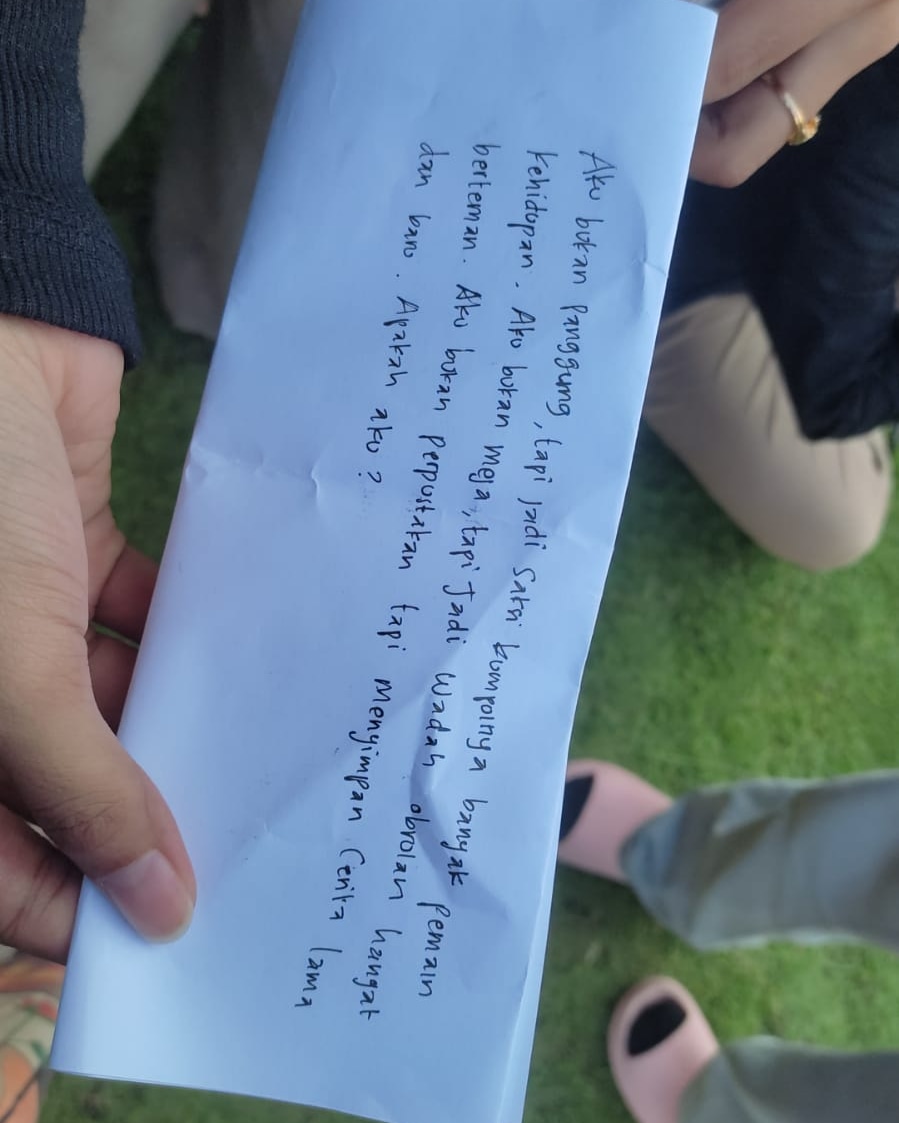 Aku bukan panggung, tapi jadi saksi kumpolnya banyak pemain
kehidupan. Aku bukan meja, tapi jadi wadah obrolan hangat
berteman. Aku bukan perpustakan tapi menyimpan cerita lama
dan baru. Apakah aku?